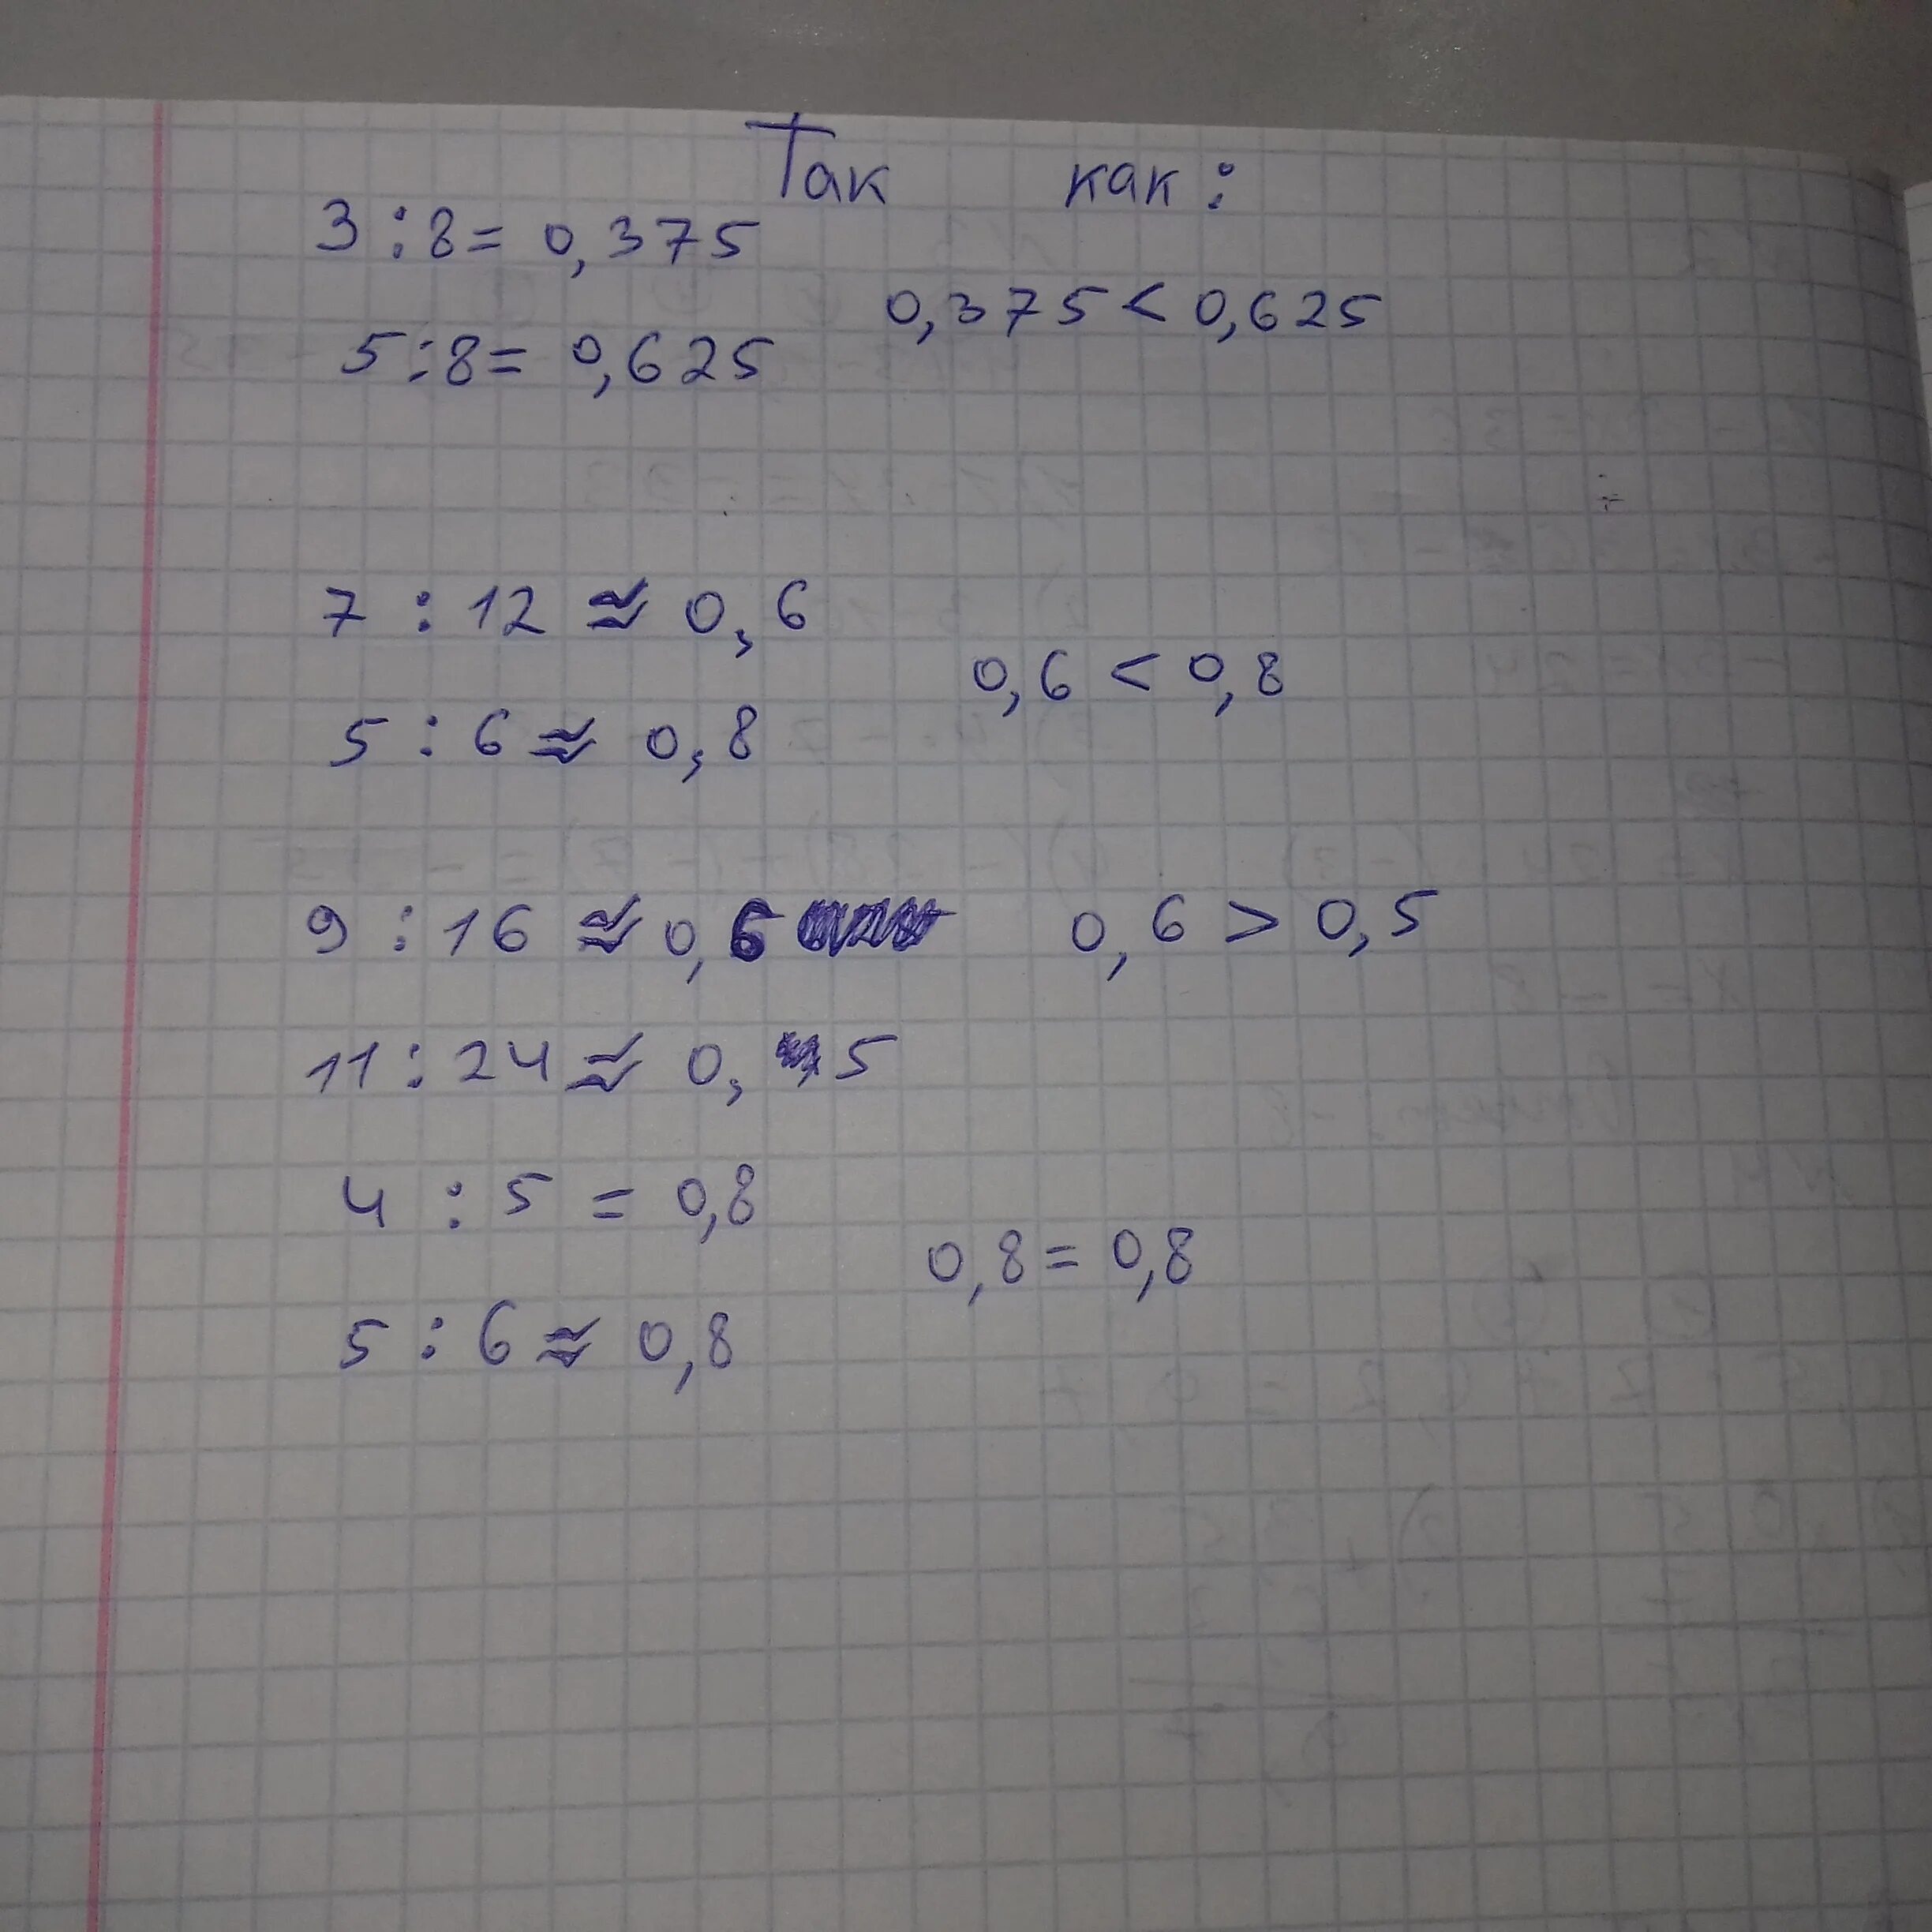 Так как:
3 : 8 = 0,375
0,375 < 0,625
5 : 8 = 0,625
7 : 12 ≈ 0,6
0,6 < 0,8
5 : 6 ≈ 0,8
9 : 16 ≈ 0,6 0,6 > 0,5
11 : 24 ≈ 0,5
4 : 5 = 0,8
0,8 = 0,8
5 : 6 ≈ 0,8